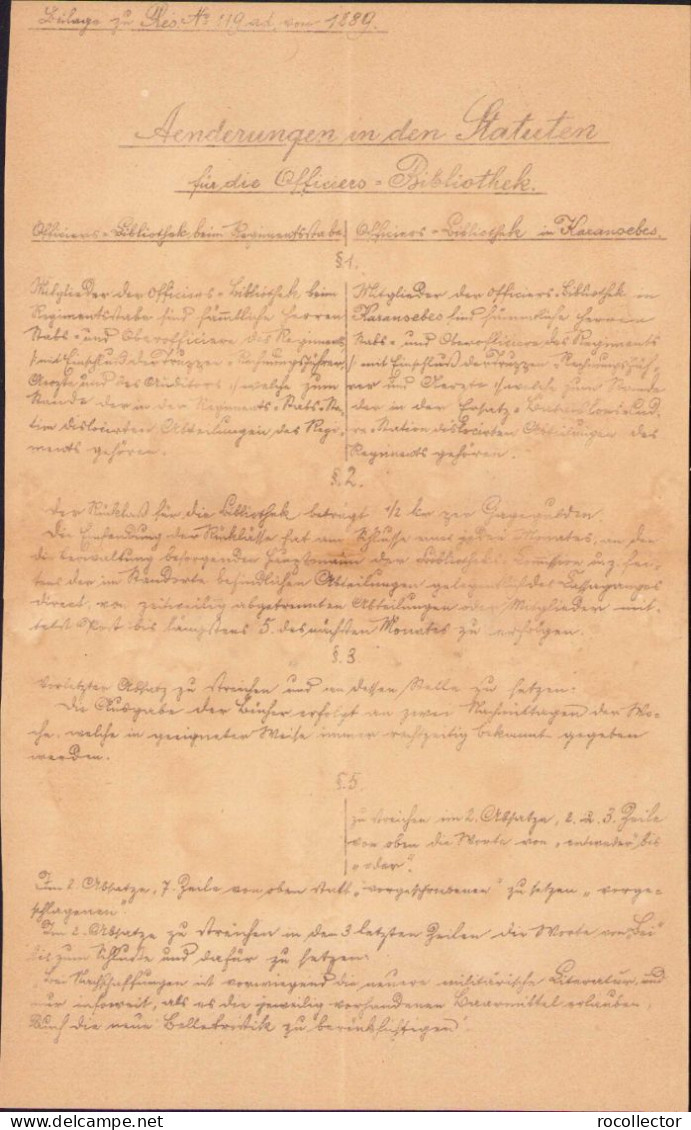 Beilage zu Res. No 119 ad. vom 1889.
Aenderungen in den Statuten
für die Officiers-Bibliothek.
Officiers-Bibliothek beim Regimentsstabe
§ 1.
Mitglieder der Officiers-Bibliothek beim
Regimentsstabe sind sämtliche Herren
Stabs- und Oberofficiere des Regiments
/: mit Einschluß der Truppen-Rechnungsführer,
Aerzte und des Auditors :/ welche zum
Stande der in der Regiments-Stabs-Sta-
tion dislocirten Abteilungen des Regi-
ments gehören.
Officiers-Bibliothek in Karansebes.
Mitglieder der Officiers-Bibliothek in
Karansebes sind sämmtliche Herren
Stabs- und Oberofficiere des Regiments
/: mit Einschluß der Truppen-Rechnungsfüh-
rer und Aerzte :/ welche zum Stande
der in der Ersatz-Bataillons-
Station dislocirten Abteilungen des
Regiments gehören.
§. 2.
Der Rücklaß für die Bibliothek beträgt 1/2 kr per Gagegulden.
Die Einsendung der Rücklässe hat am Schlusse eines jeden Monates, an den
die Verwaltung besorgenden Hauptmann der Bibliotheks-Commission u. z. sei-
tens der im Standorte befindlichen Abteilungen gelegentlich des Cassaganges
direct, von zeitweilig abgetrennten Abteilungen oder Mitgliedern mit-
telst Post bis längstens 5. des nächsten Monates zu erfolgen.
§. 3
Vorletzter Absatz zu streichen und an dessen Stelle zu setzen:
Die Ausgabe der Bücher erfolgt an zwei Nachmittagen der Wo-
che, welche in geeigneter Weise immer rechtzeitig bekannt gegeben
werden.
§. 5.
zu streichen im 2. Absatze, 2. u. 3. Zeile
von oben die Worte von „entweder" bis
„oder".
Im 2. Absatze, 7. Zeile von oben statt „vorgeschriebenen" zu setzen „vorge-
schlagenen".
Im 2. Absatze zu streichen in den 3 letzten Zeilen die Worte von „Bei"
bis zum Schlusse und dafür zu setzen:
„Bei Nachschaffungen ist vorwiegend die neuere militärische Literatur, und
nur insoweit, als es die jeweilig vorhandenen Baarmittel erlauben,
auch die neue Belletristik zu berücksichtigen".
www.delcampe.net
rocollector